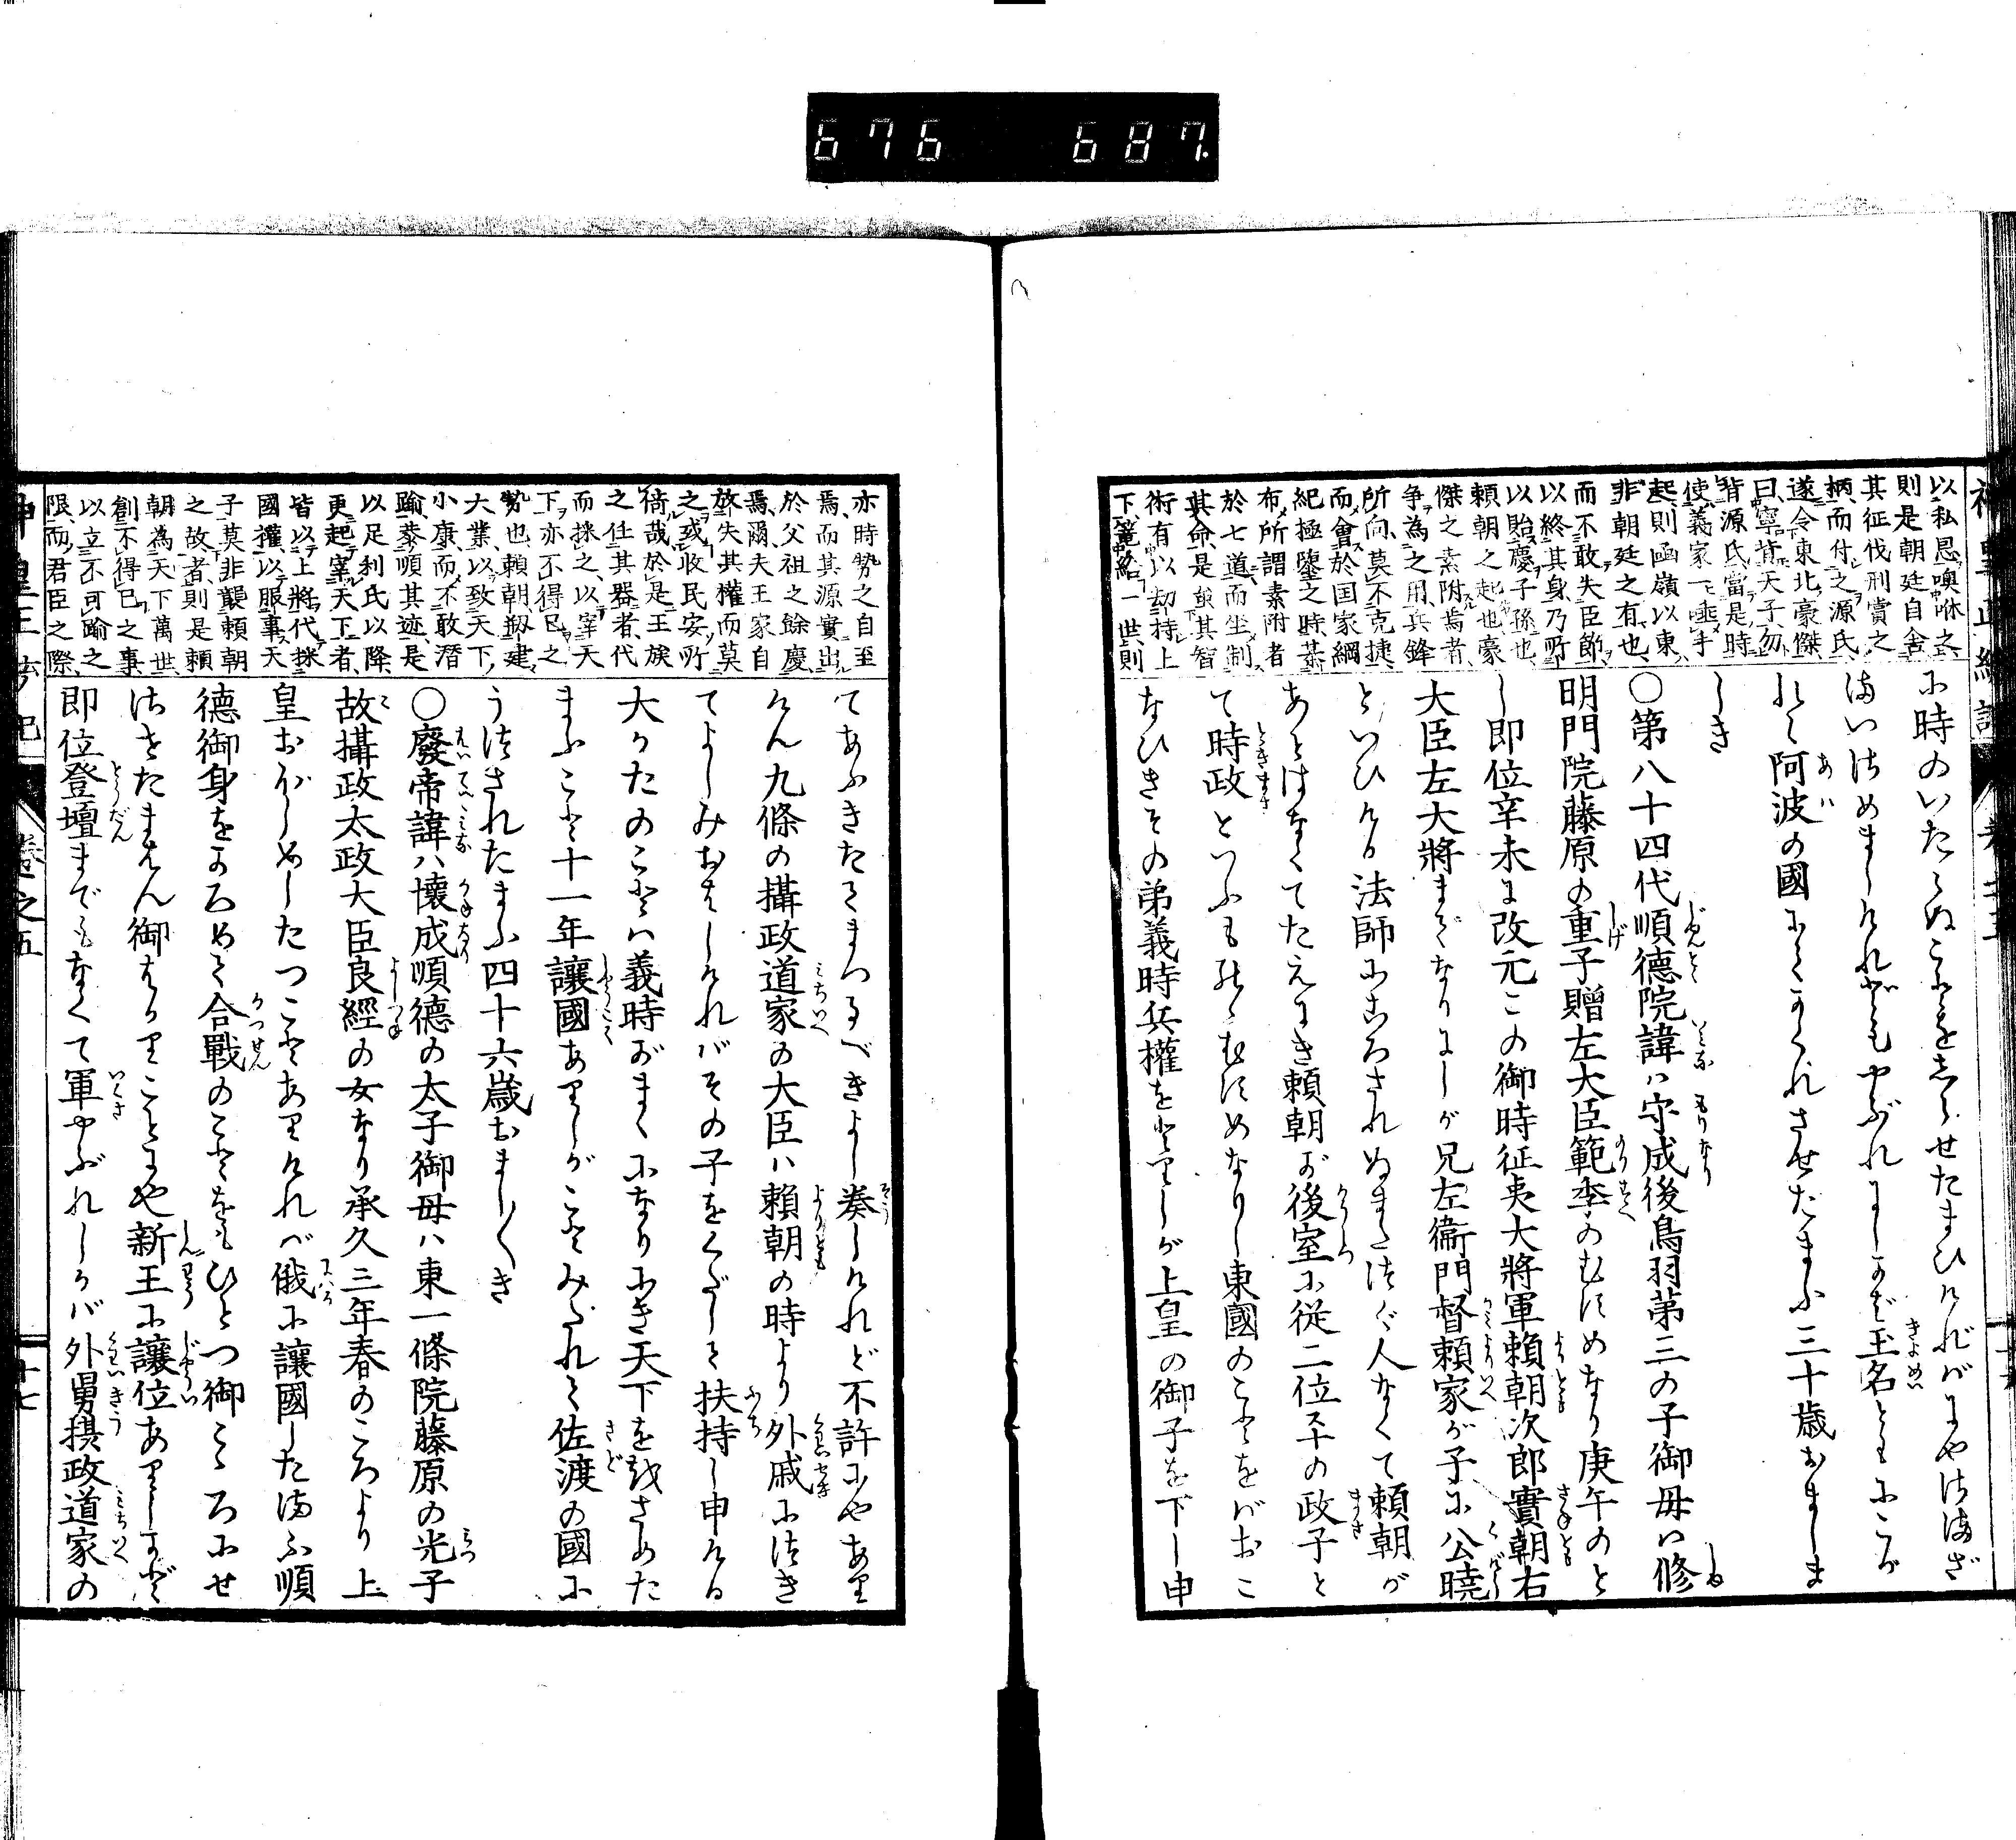 676 687.
以私恩噢咻之、
則是朝廷自舍
其征伐刑賞之
柄、而付之源氏、
遂令東北豪傑
曰、寧背天子、勿
背源氏、當是時、
使義家一唾手
起、則函嶺以東、
非朝廷之有也、
而不敢失臣節、
以終其身、乃所
以貽慶子孫也、
頼朝之起也、豪
傑之素附焉者、
争為之用、兵鋒
所向、莫不克捷、
而會於国家綱
紀極墜之時、萁
布所謂素附者
於七道、而坐制
其命、是雖其智
術有以劫持上
下、籠絡一世、則
に時のいたらぬことをしらせたまひければにやはま
まいはめましけれどもやぶれにしかば玉名とともにこ
れて阿波の國にてかくれさせたまふ三十歳おましま
しき
〇第八十四代順德院諱ハ守成後鳥羽第三の子御母ハ修
明門院藤原の重子贈左大臣範季のむすめなり庚午のと
し即位辛未に改元この御時征夷大將軍頼朝次郎實朝右
大臣左大將までなりにしが兄左衞門督頼家が子に公曉
といひける法師にころされぬまたつぐ人なくて頼朝が
あとはなくてたえにき頼朝が後室に從二位平の政子と
て時政といふものゝむすめなりし東國のことをばおこ
なひきその弟義時兵權をとりしが上皇の御子を下し申
亦時勢之自至
焉、而其源實出
於父祖之餘慶
焉、爾、夫王家自
放失其權、而莫
之或收、民安所
倚哉、於是王族
之任其器者、代
而採之、以宰天
下、亦不得已之
勢也、頼朝剏建
大業、以致天下
小康、而不敢潛
踰、恭順其迹、是
以足利氏以降
更起宰天下者、
皆以上將代採
國權、以服事天
子、莫非襲頼朝
之故者、則是頼
朝為天下萬世、
創不得已之事、
以立不可踰之
限、而君臣之際、
てあふきたてまつるべきよし奏しけれど不許にやあり
けん九條の攝政道家の大臣ハ頼朝の時より外戚につき
てよしみおはしければその子をくだして扶持し申ける
大かたのことは義時がまゝになりにき天下ををさめた
まふこと十一年讓國ありしがことみだれて佐渡の國に
うつされたまふ四十六歳おまし〱き
〇廢帝諱ハ懷成順德の太子御母ハ東一條院藤原の光子
故攝政太政大臣良經の女なり承久三年春のころより上
皇おぼしめしたつことありければ俄に讓國したまふ順
德御身をかろめて合戰のことをもひとつ御こゝろにせ
させたまはん御はかりことにや新王に讓位ありしかど
即位登壇までもなくて軍やぶれしかバ外舅攝政道家の
卷之五
十七